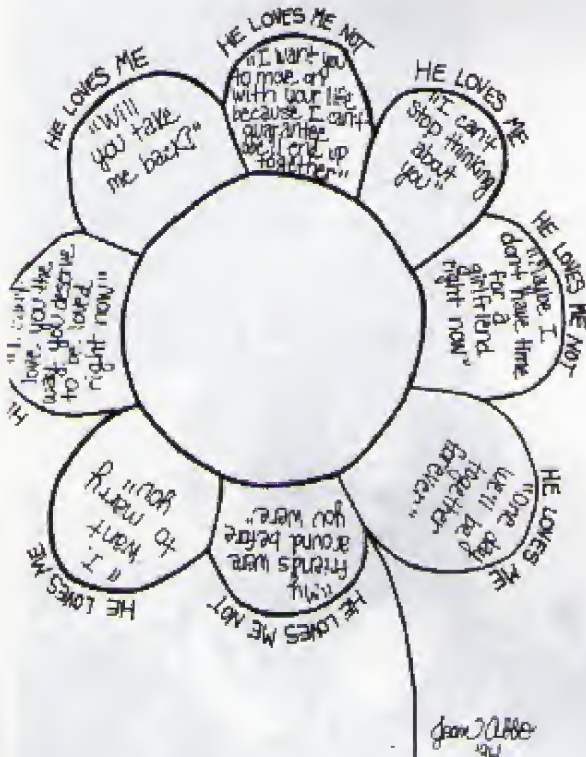 HE LOVES ME NOT
"I want you
to move on
with your life
because I can't
guarantee
we'll end up
together"
HE LOVES ME
"I can't
stop thinking
about
you"
HE LOVES ME NOT
"Maybe I
don't have time
for a
girlfriend
right now"
HE LOVES ME
"One day
we'll be
together
forever"
HE LOVES ME NOT
"My
friends were
around before
you were"
HE LOVES ME
"I
want
to marry
you"
"I can't
love you the
way you deserve
to be loved
right now"
HE LOVES ME
"Will
you take
me back?"